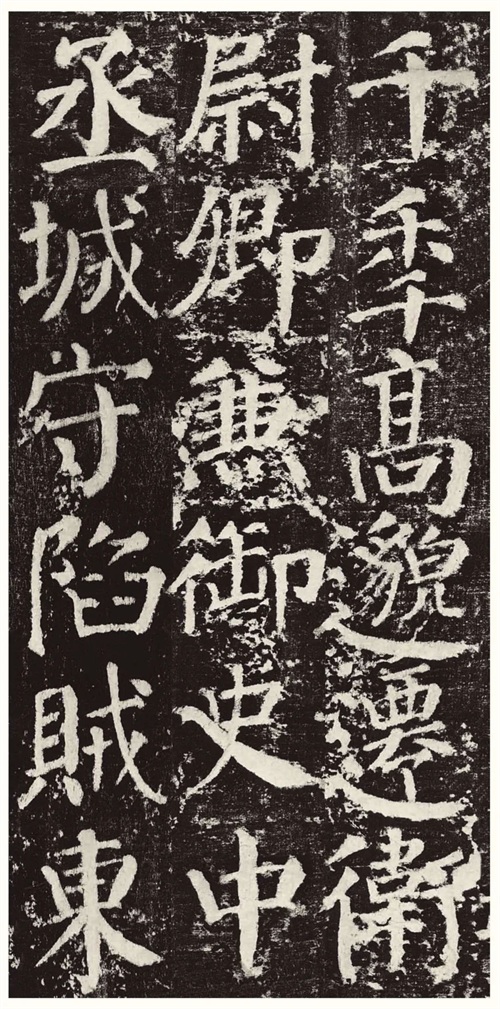 千秊高邈遷衛
尉卿兼御史中
丞城守陷賊東